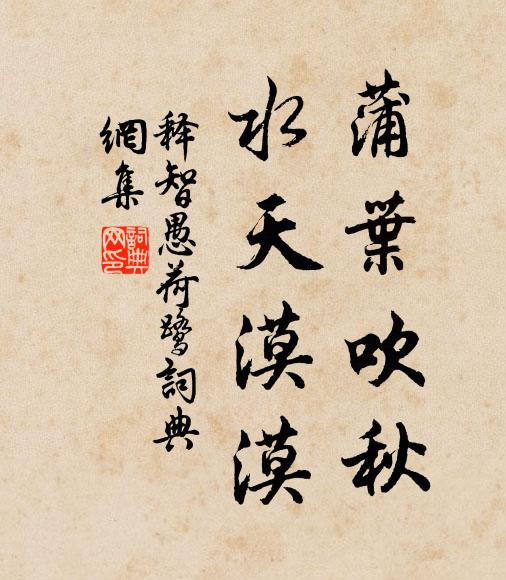 蒲葉吹秋
水天漠漠
释智愚荷鹭詞典
網集
詞典
网印